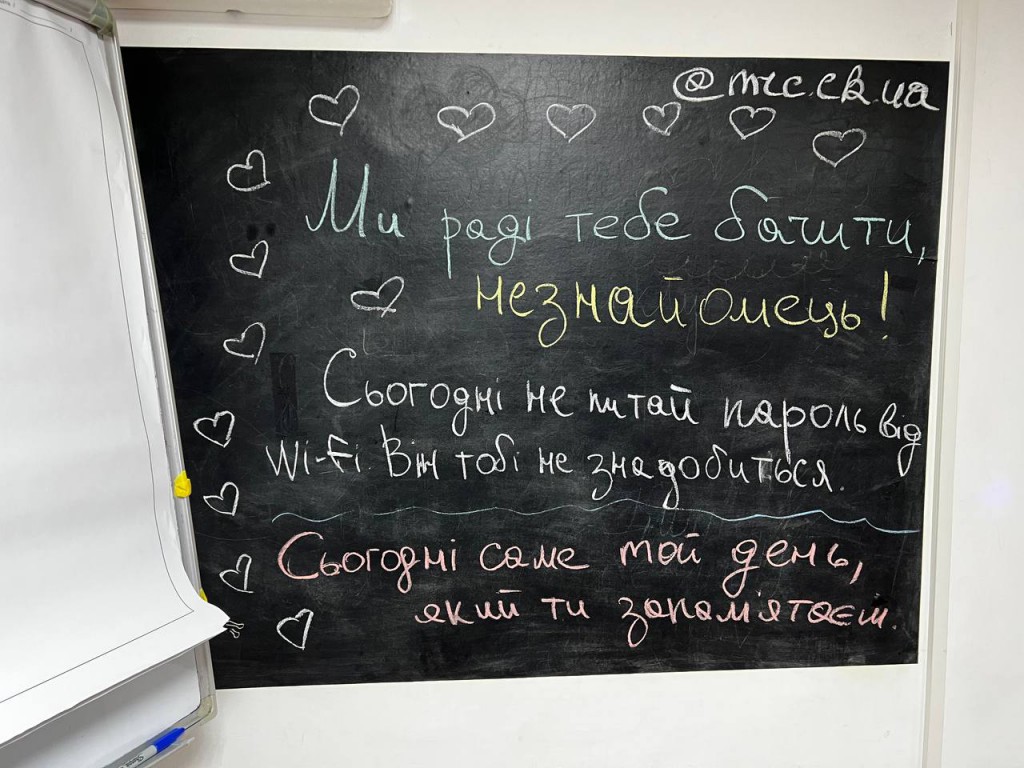 @mcc.ck.ua
Ми раді тебе бачити,
незнайомець!
Сьогодні не питай пароль від
Wi-Fi. Він тобі не знадобиться.
Сьогодні саме той день,
який ти запам'ятаєш.